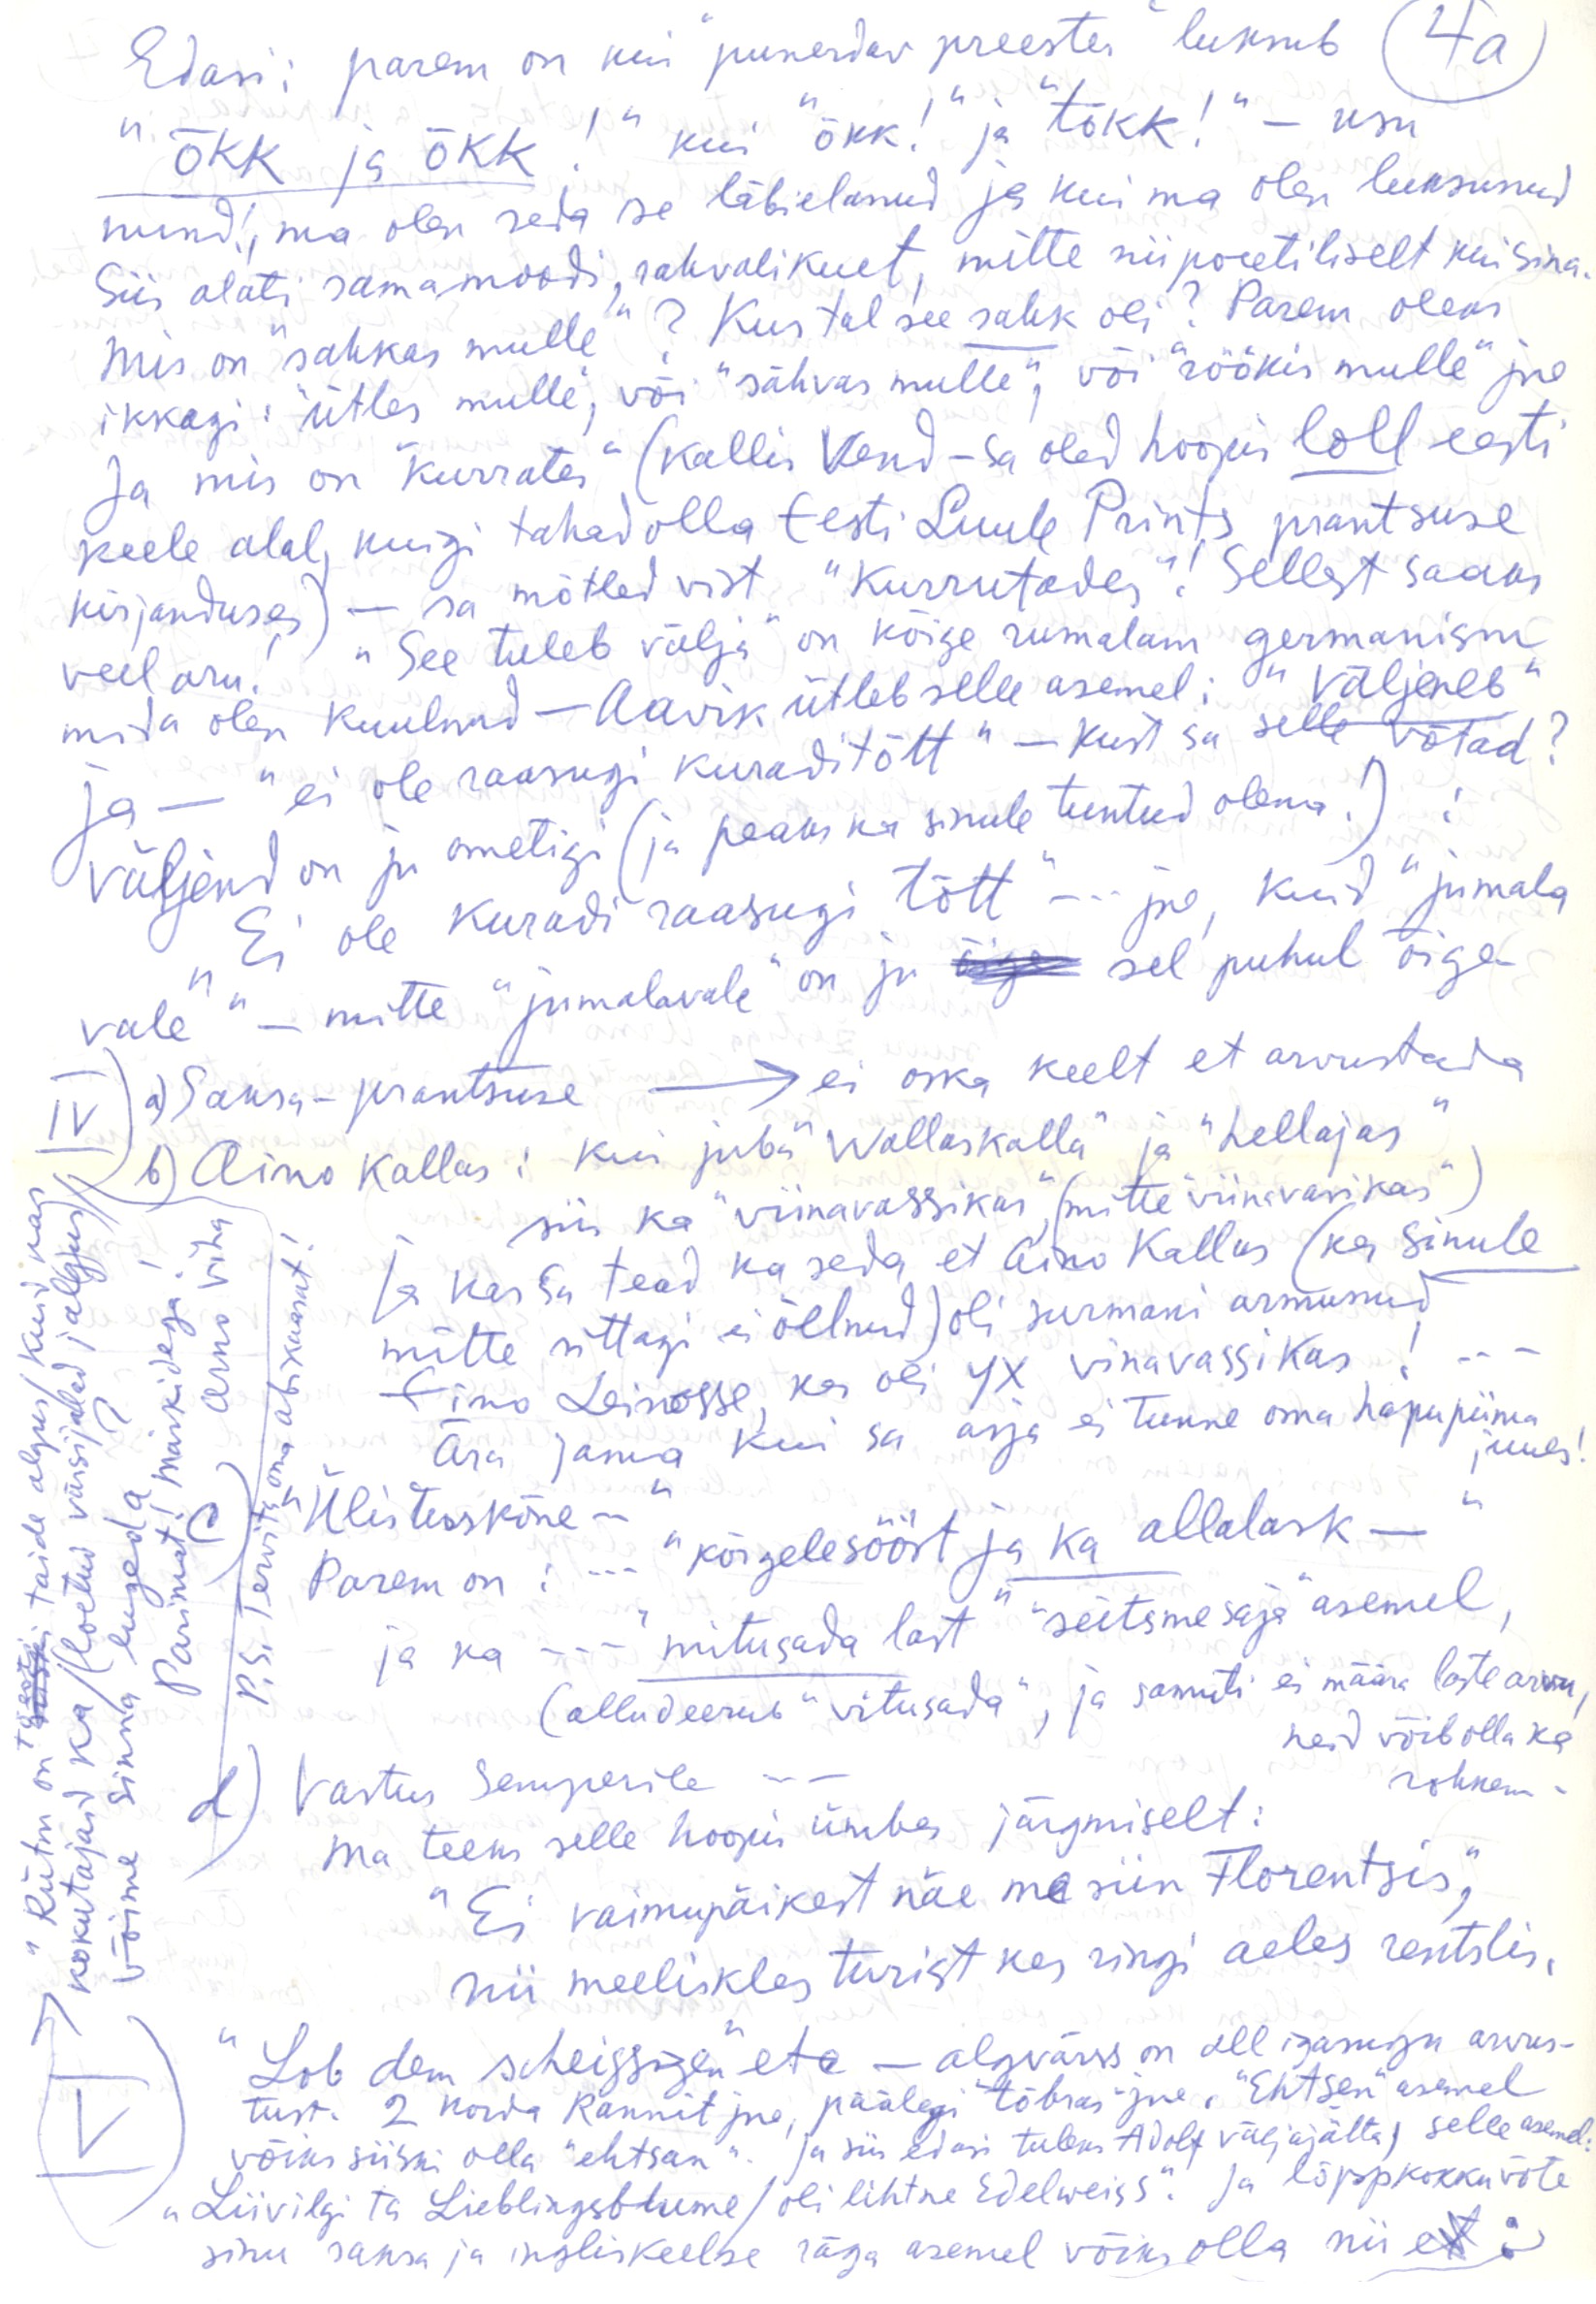 Edasi: parem on kui "punerdav preester" luksub
4a
"ÕKK ja ÕKK!" kui "õkk!" ja "tõkk!" – usu
mind!, ma olen seda ise läbielanud ja kui ma olen luksunud
siis alati samamoodi, rahvalikult, mitte nii poeetiliselt kui Sina.
Mis on "sahkas mulle"? Kus tal see sahk oli? Parem oleks
ikkagi: "ütles mulle", või "sähvas mulle", või "röökis mulle" jne
Ja mis on "kurrates" (kallis Vend – sa oled hoopis loll eesti
keele alal, kuigi tahad olla Eesti Luule Prints prantsuse
kirjanduses) – sa mõtled vist "kurrutades"! Sellest saaks
veel aru! "See tuleb välja" on kõige rumalam germanism
mida olen kuulnud – Aavik ütleb selle asemel: "väljeneb"
ja – "ei ole raasugi kuraditõtt" – kust sa selle võtad?
Väljend on ju ometigi (ja peaks ka sinule tuntud olema!):
"Ei ole kuradi raasugi tõtt" --- jne, kuid "jumala
vale" – mitte "jumalavale" on ju sel puhul õige –
IV
a) Saksa-prantsuse → ei oska keelt et arvustada
b) Aino Kallas: kui juba "Wallaskalla" ja "hellajas"
siis ka "viinavassikas", (mitte "viinavasikas")
Ja kas sa tead ka seda et Aino Kallas (kes sinule
mitte sittagi ei öelnud) oli surmani armunud
Eino Leinosse, kes oli yx vinavassikas! ---
Ära jama kui sa asja ei tunne oma hapupiima
juures!
c) "Ülistuskõne –"
Parem on: --- "kõrgelesööst ja ka allalask –"
ja ka --- "mitusada last" "seitsmesaja" asemel,
(alludeerub "vitusada", ja samuti ei määra laste arvu,
neid võib olla ka
rohkem –
d) Vastus Semperile ---
Ma teeks selle hoopis ümber järgmiselt:
"Ei vaimupäikest näe me siin Florentsis",
nii meeliskles turist kes ringi aeles rentslis.
V
"Lob dem scheissigen" etc – algvärss on all igasugu arvus-
tust. 2 korda Rannit jne, päälegi "tõbras" jne. "Ehtsen" asemel
võiks siiski olla "ehtsan". Ja siis edasi tuleks Adolf väljajätta, selle asemel:
"Liivilgi ta Lieblingsblume / oli lihtne Edelweiss". Ja lõppkokkuvõte
sinu saksa ja ingliskeelse räga asemel võiks olla nii et:
"Rütm on tõesti taide algus / kuid kas
kokutajaid ka / loetud värsijalad jalgjus //
võime sinna lugeda?
Parimat! Märkidega!
Arno Viha
P.S. Tervita oma abikaasat!